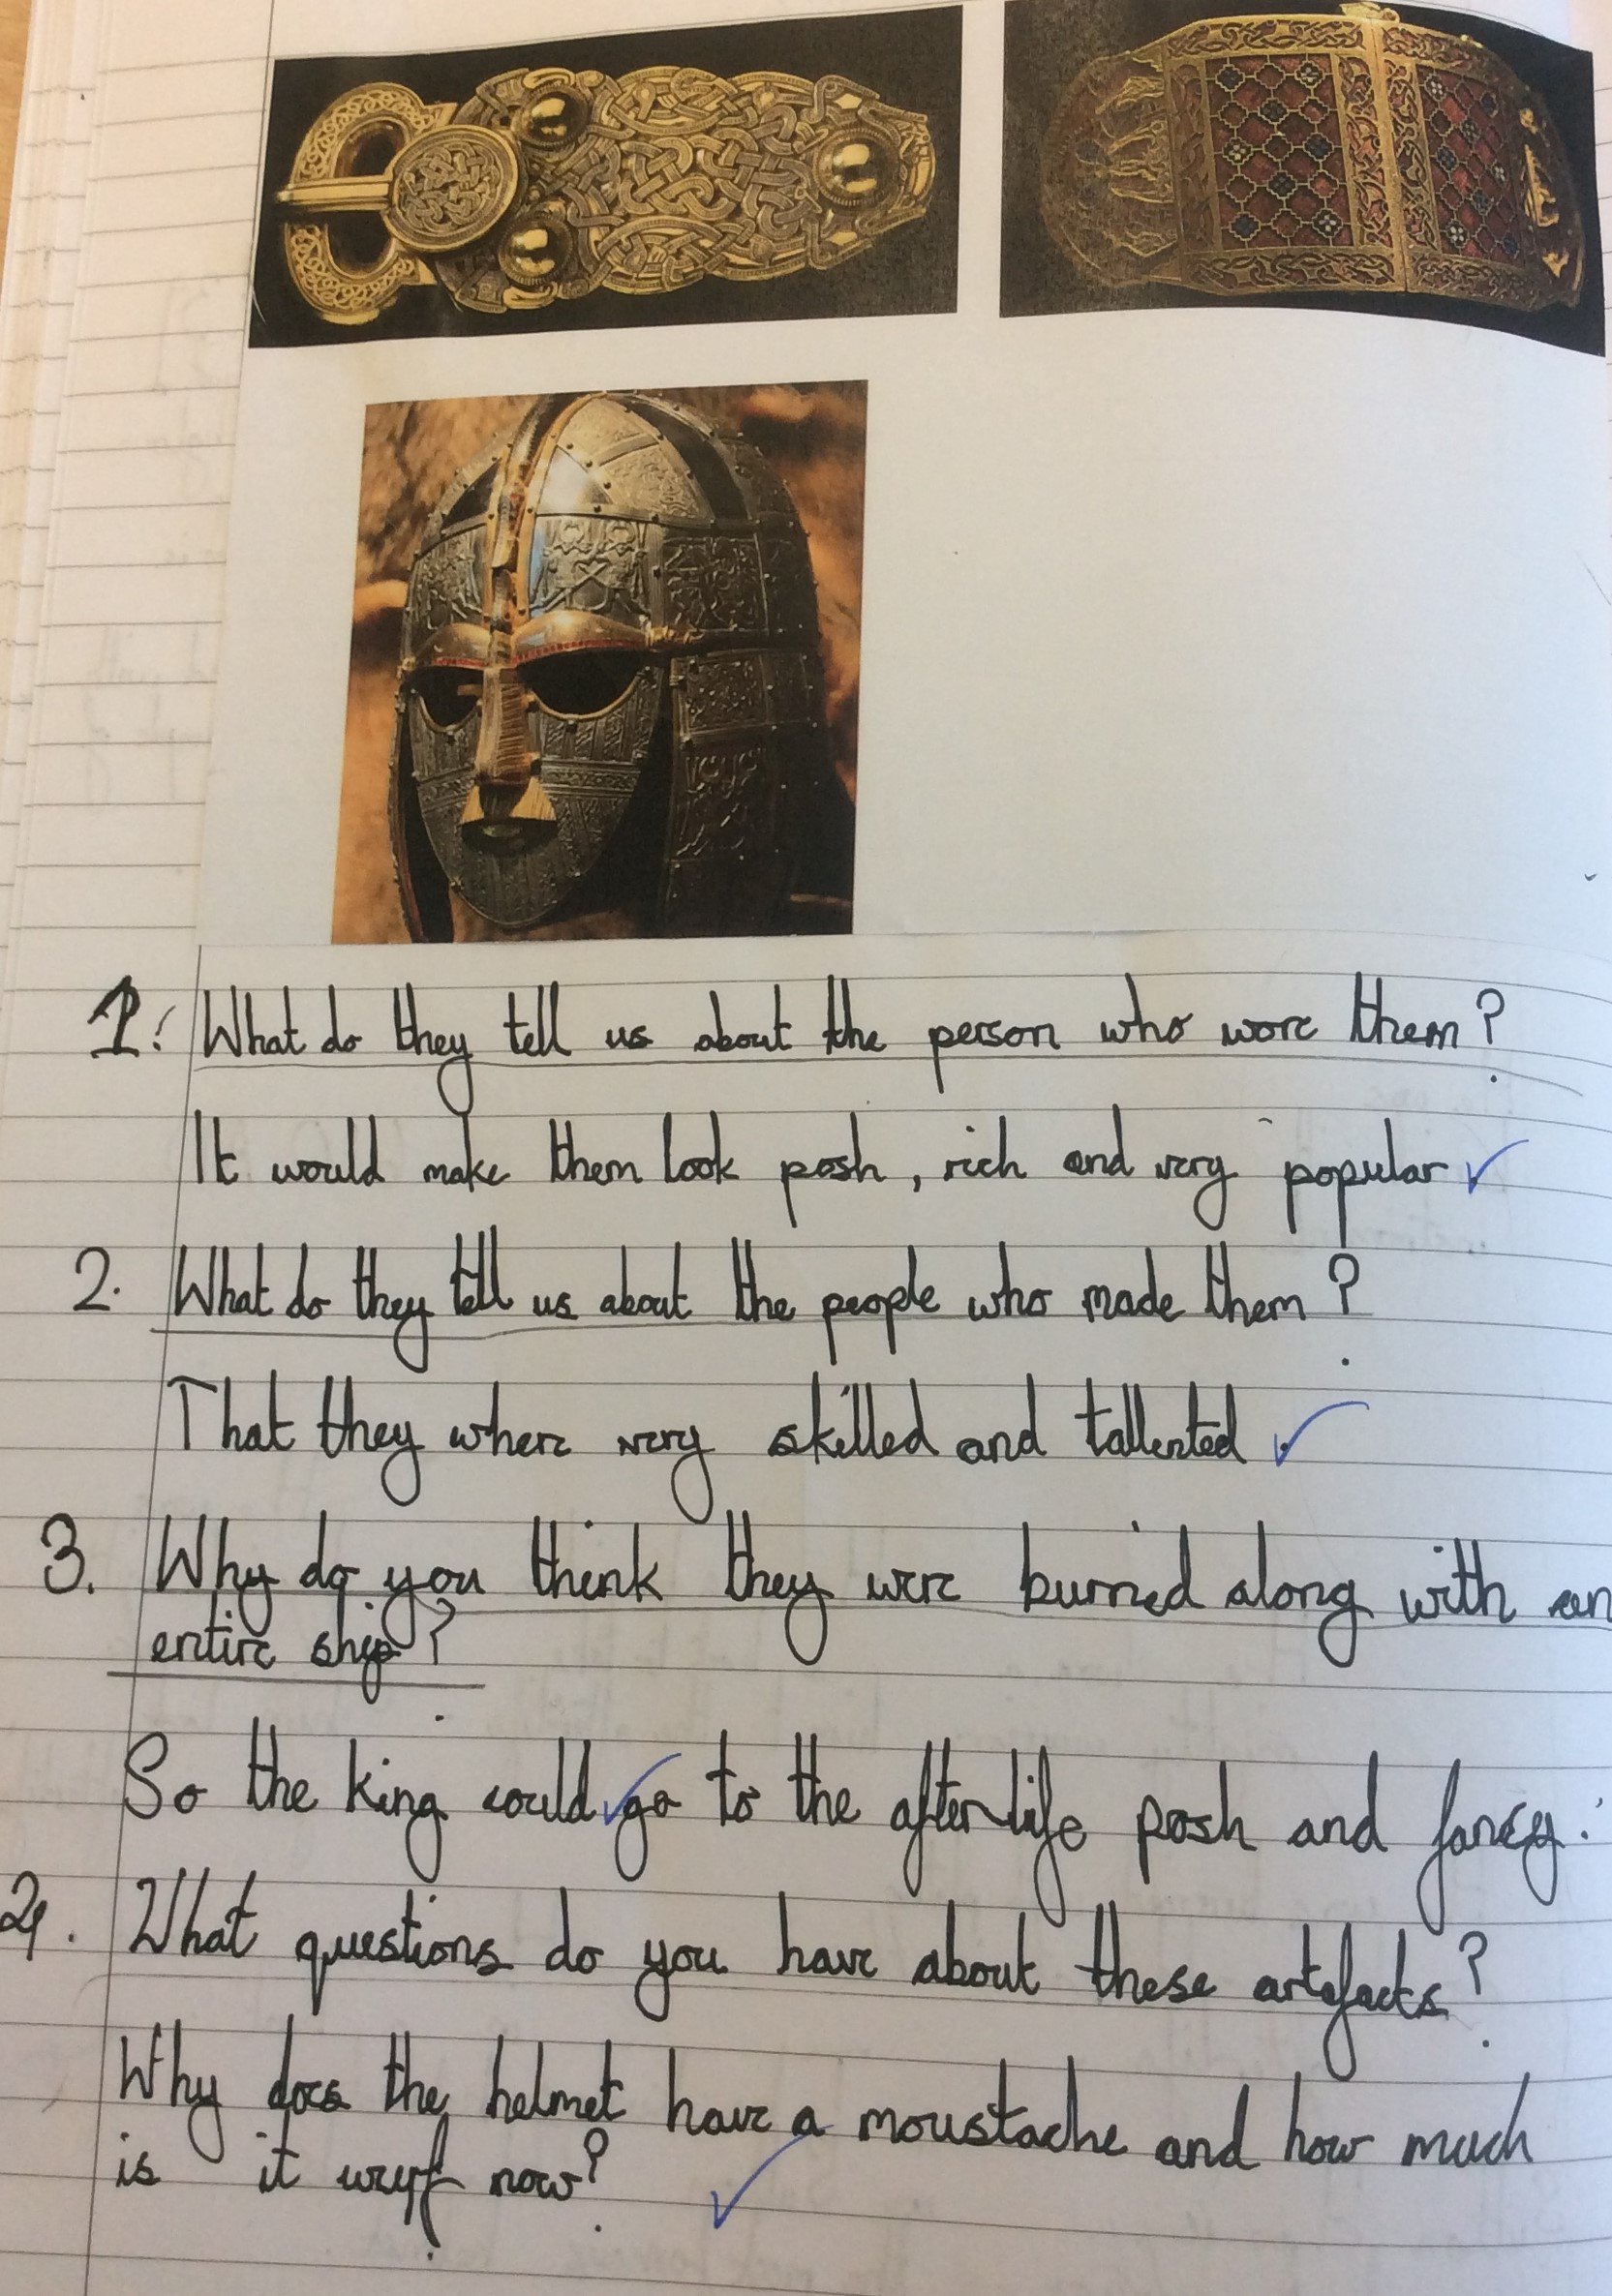 1. What do they tell us about the person who wore them?
It would make them look posh, rich and very popular
2. What do they tell us about the people who made them?
That they where very skilled and tallented.
3. Why do you think they were burried along with an
entire ship?
So the king could go to the afterlife posh and fancy.
4. What questions do you have about these artefacts?
Why does the helmet have a moustache and how much
is it wurf now?